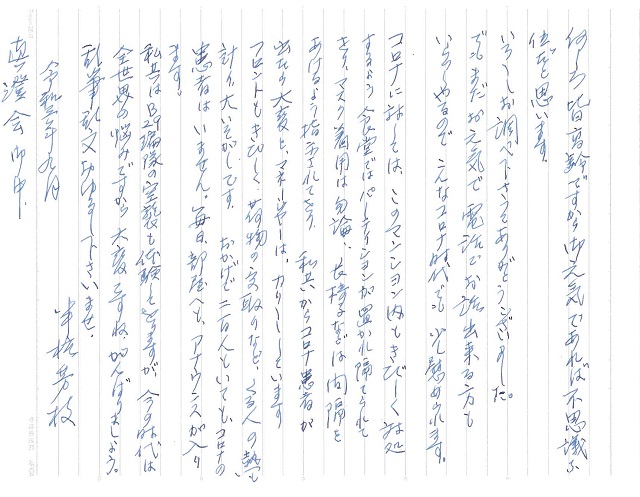 何しろ皆高齢ですから御元気であれば不思議な
位だと思います。
いろいろお調べ下さってありがとうございました。
でもまだお元気で電話でお話出来る方も
いらっしゃるので こんなコロナ時代でも 少し慰められます。
コロナに対しては、このマンション内もきびしく対処
するよう 食堂ではパーティションが置かれ隔てられて
きり マスク着用は勿論、長椅子などは間隔を
あけるよう指示されており 私共からコロナ患者が
出たら大変と、マネージャーは、カリカリしています
フロントもきびしく、荷物の受取りなど、くる人の熱も
計り大いそがしです。おかげで二百人といても、コロナの
患者は いません。毎日、部屋へも、アナウンスが入り
ます。
私共はB29編隊の空襲も体験してますが、今の時代は
全世界の悩みですから 大変ですね。がんばりましょう。
乱筆乱文お許し下さいませ。
令和三年九月
芳枝
真澄会御中